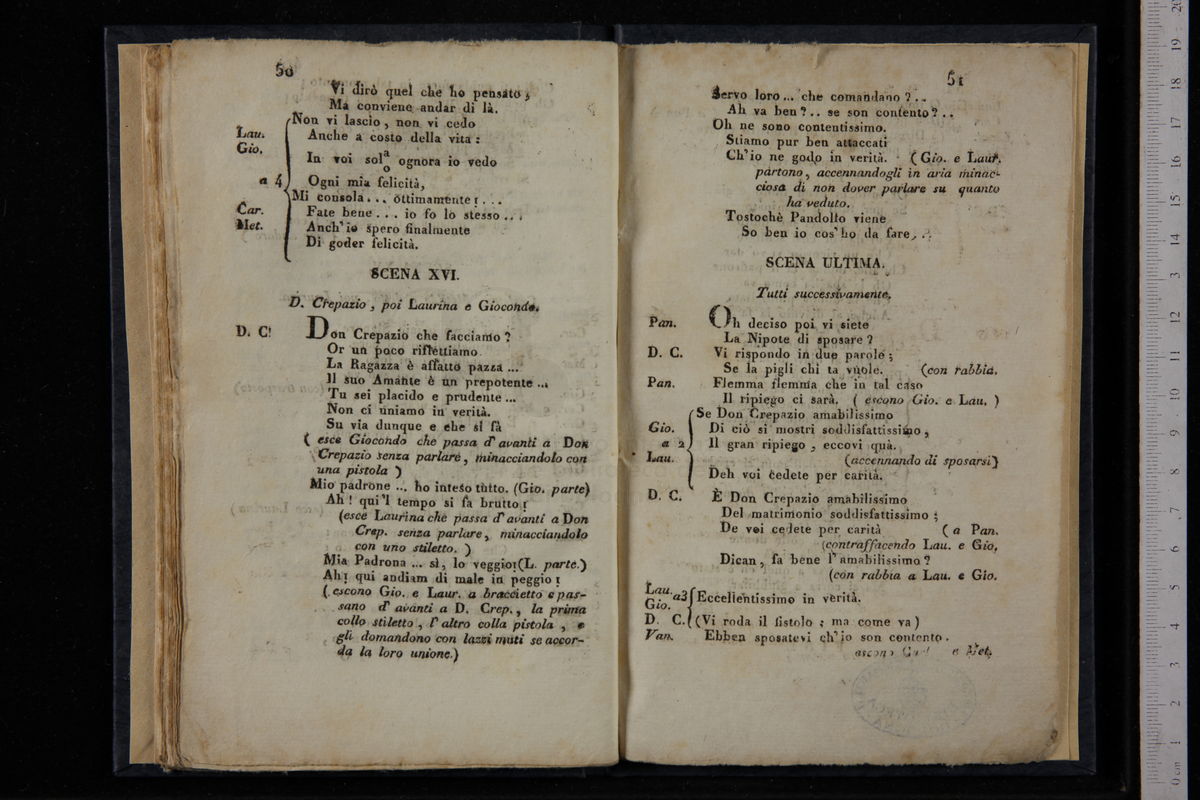 50
Vi dirò quel che ho pensato,
Ma conviene andar di là.
Non vi lascio, non vi cedo
Lau. Anche a costo della vita:
Gio.
In voi sola/o ognora io vedo
a 4 Ogni mia felicità,
Mi consola... ottimamente:...
Car. Fate bene... io fo lo stesso...
Met. Anch'io spero finalmente
Di goder felicità.
SCENA XVI.
D. Crepazio, poi Laurina e Giocondo.
D. C. Don Crepazio che facciamo?
Or un poco riflettiamo
La Ragazza è affatto pazza...
Il suo Amante è un prepotente...
Tu sei placido e prudente...
Non ci uniamo in verità.
Su via dunque e che si fà
( esce Giocondo che passa d'avanti a Don
Crepazio senza parlare, minacciandolo con
una pistola )
Mio padrone... ho inteso tutto. (Gio. parte)
Ah! qui'l tempo si fa brutto!
(esce Laurina che passa d'avanti a Don
Crep. senza parlare, minacciandolo
con uno stiletto. )
Mia Padrona... sì, lo veggio!(L. parte.)
Ah! qui andiam di male in peggio!
( escono Gio. e Laur. a braccietto e pas-
sano d'avanti a D. Crep., la prima
collo stiletto, l'altro colla pistola, e
gli domandono con lazzi muti se accor-
da la loro unione.)
51
Servo loro... che comandano?..
Ah va ben?.. se son contento?..
Oh ne sono contentissimo.
Stiamo pur ben attaccati
Ch'io ne godo in verità. (Gio. e Laur.
partono, accennandogli in aria minac-
ciosa di non dover parlare su quanto
ha veduto.
Tostochè Pandolfo viene
So ben io cos'ho da fare...
SCENA ULTIMA.
Tutti successivamente.
Pan. Oh deciso poi vi siete
La Nipote di sposare?
D. C. Vi rispondo in due parole;
Se la pigli chi la vuole. (con rabbia.
Pan. Flemma flemma che in tal caso
Il ripiego ci sarà. ( escono Gio. e Lau. )
Se Don Crepazio amabilissimo
Gio. Di ciò si mostri soddisfattissimo,
a 2 Il gran ripiego, eccovi quà.
Lau. (accennando di sposarsi)
Deh voi cedete per carità.
D. C. È Don Crepazio amabilissimo
Del matrimonio soddisfattissimo;
De voi cedete per carità (a Pan.
(contraffacendo Lau. e Gio.
Dican, fa bene l'amabilissimo?
(con rabbia a Lau. e Gio.
Lau. a3 Eccellentissimo in verità.
Gio.
D. C. (Vi roda il fistolo; ma come va)
Pan. Ebben sposatevi ch'io son contento.
escono e Met.